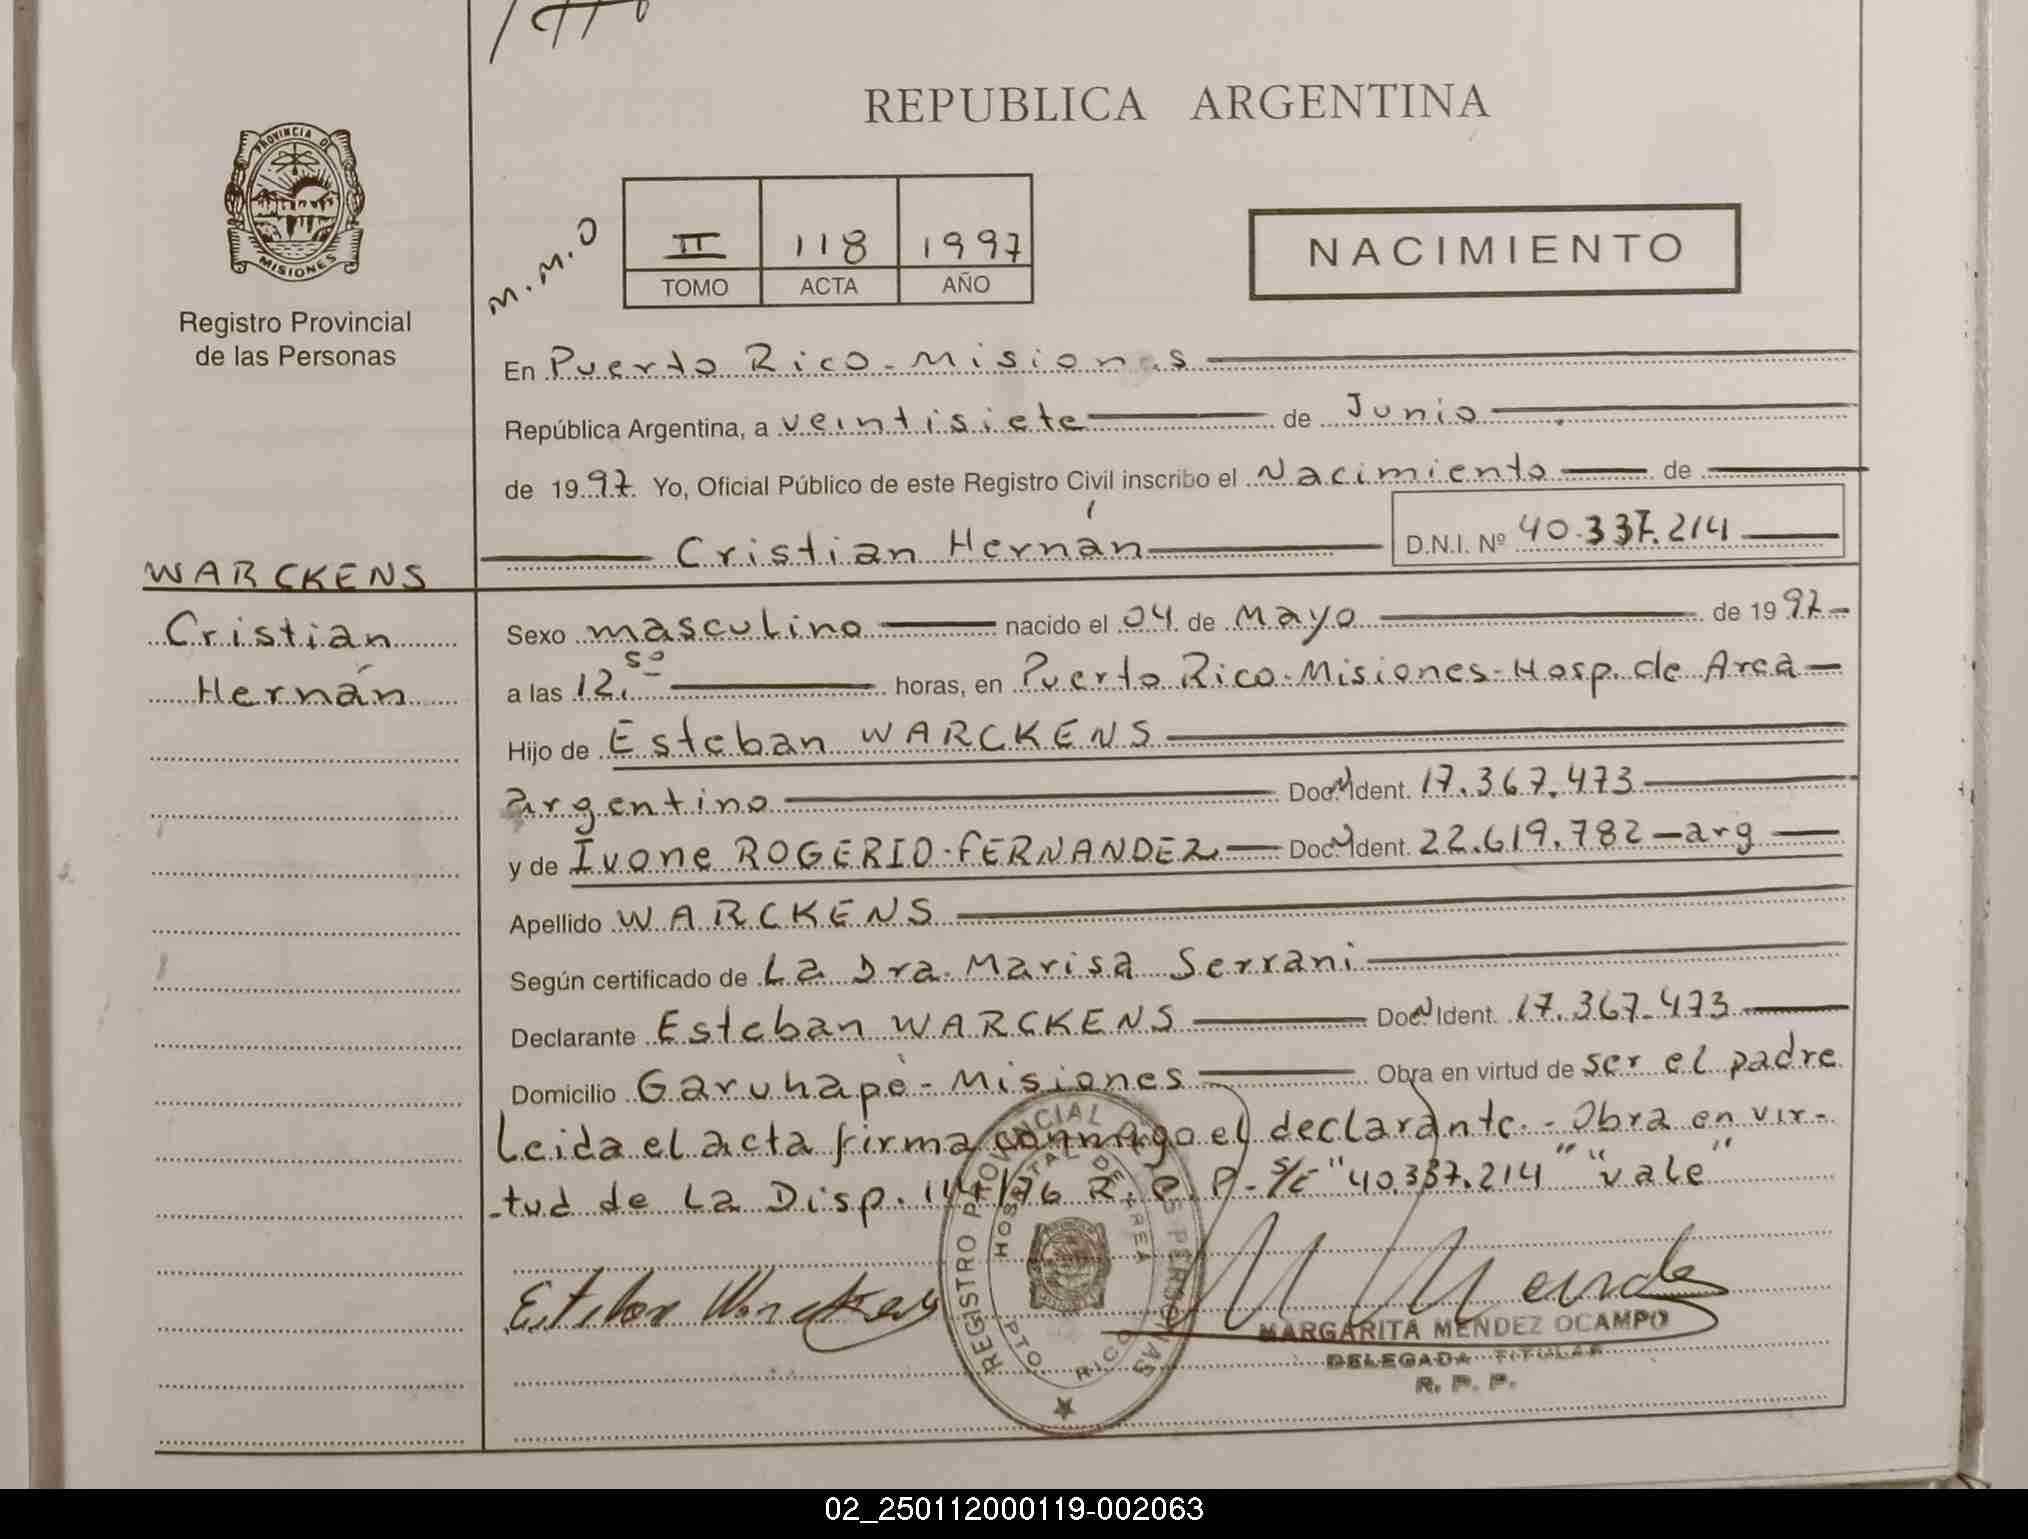 REPUBLICA ARGENTINA
PROVINCIA DE
MISIONES
Registro Provincial
de las Personas
M.M.O
II 118 1997
TOMO ACTA AÑO
NACIMIENTO
En Puerto Rico-Misiones
República Argentina, a veintisiete de Junio
de 1997. Yo, Oficial Público de este Registro Civil inscribo el Nacimiento de
Cristian Hernán D.N.I. Nº 40.337.214
WARCKENS
Cristian
Hernán
Sexo masculino nacido el 04 de Mayo de 1997
a las 12,50 horas, en Puerto Rico-Misiones-Hosp. de Area
Hijo de Esteban WARCKENS
argentino Doc. N Ident. 17.367.473
y de Ivone ROGERIO-FERNANDEZ Doc. N Ident. 22.619.782-arg
Apellido WARCKENS
Según certificado de La Dra. Marisa Serrani
Declarante Esteban WARCKENS Doc. N Ident. 17.367.473
Domicilio Garuhapè-Misiones Obra en virtud de ser el padre
Leida el acta firma conmigo el declarante.-Obra en vir-
-tud de La Disp. 114/76 R.P.P- S/E "40.337.214" "vale"
Esteban Warckens
M Mende
REGISTRO PROVINCIAL DE LAS PERSONAS
HOSPITAL DE AREA
PTO RICO
MARGARITA MENDEZ OCAMPO
DELEGADA TITULAR
R. P. P.
02_250112000119-002063